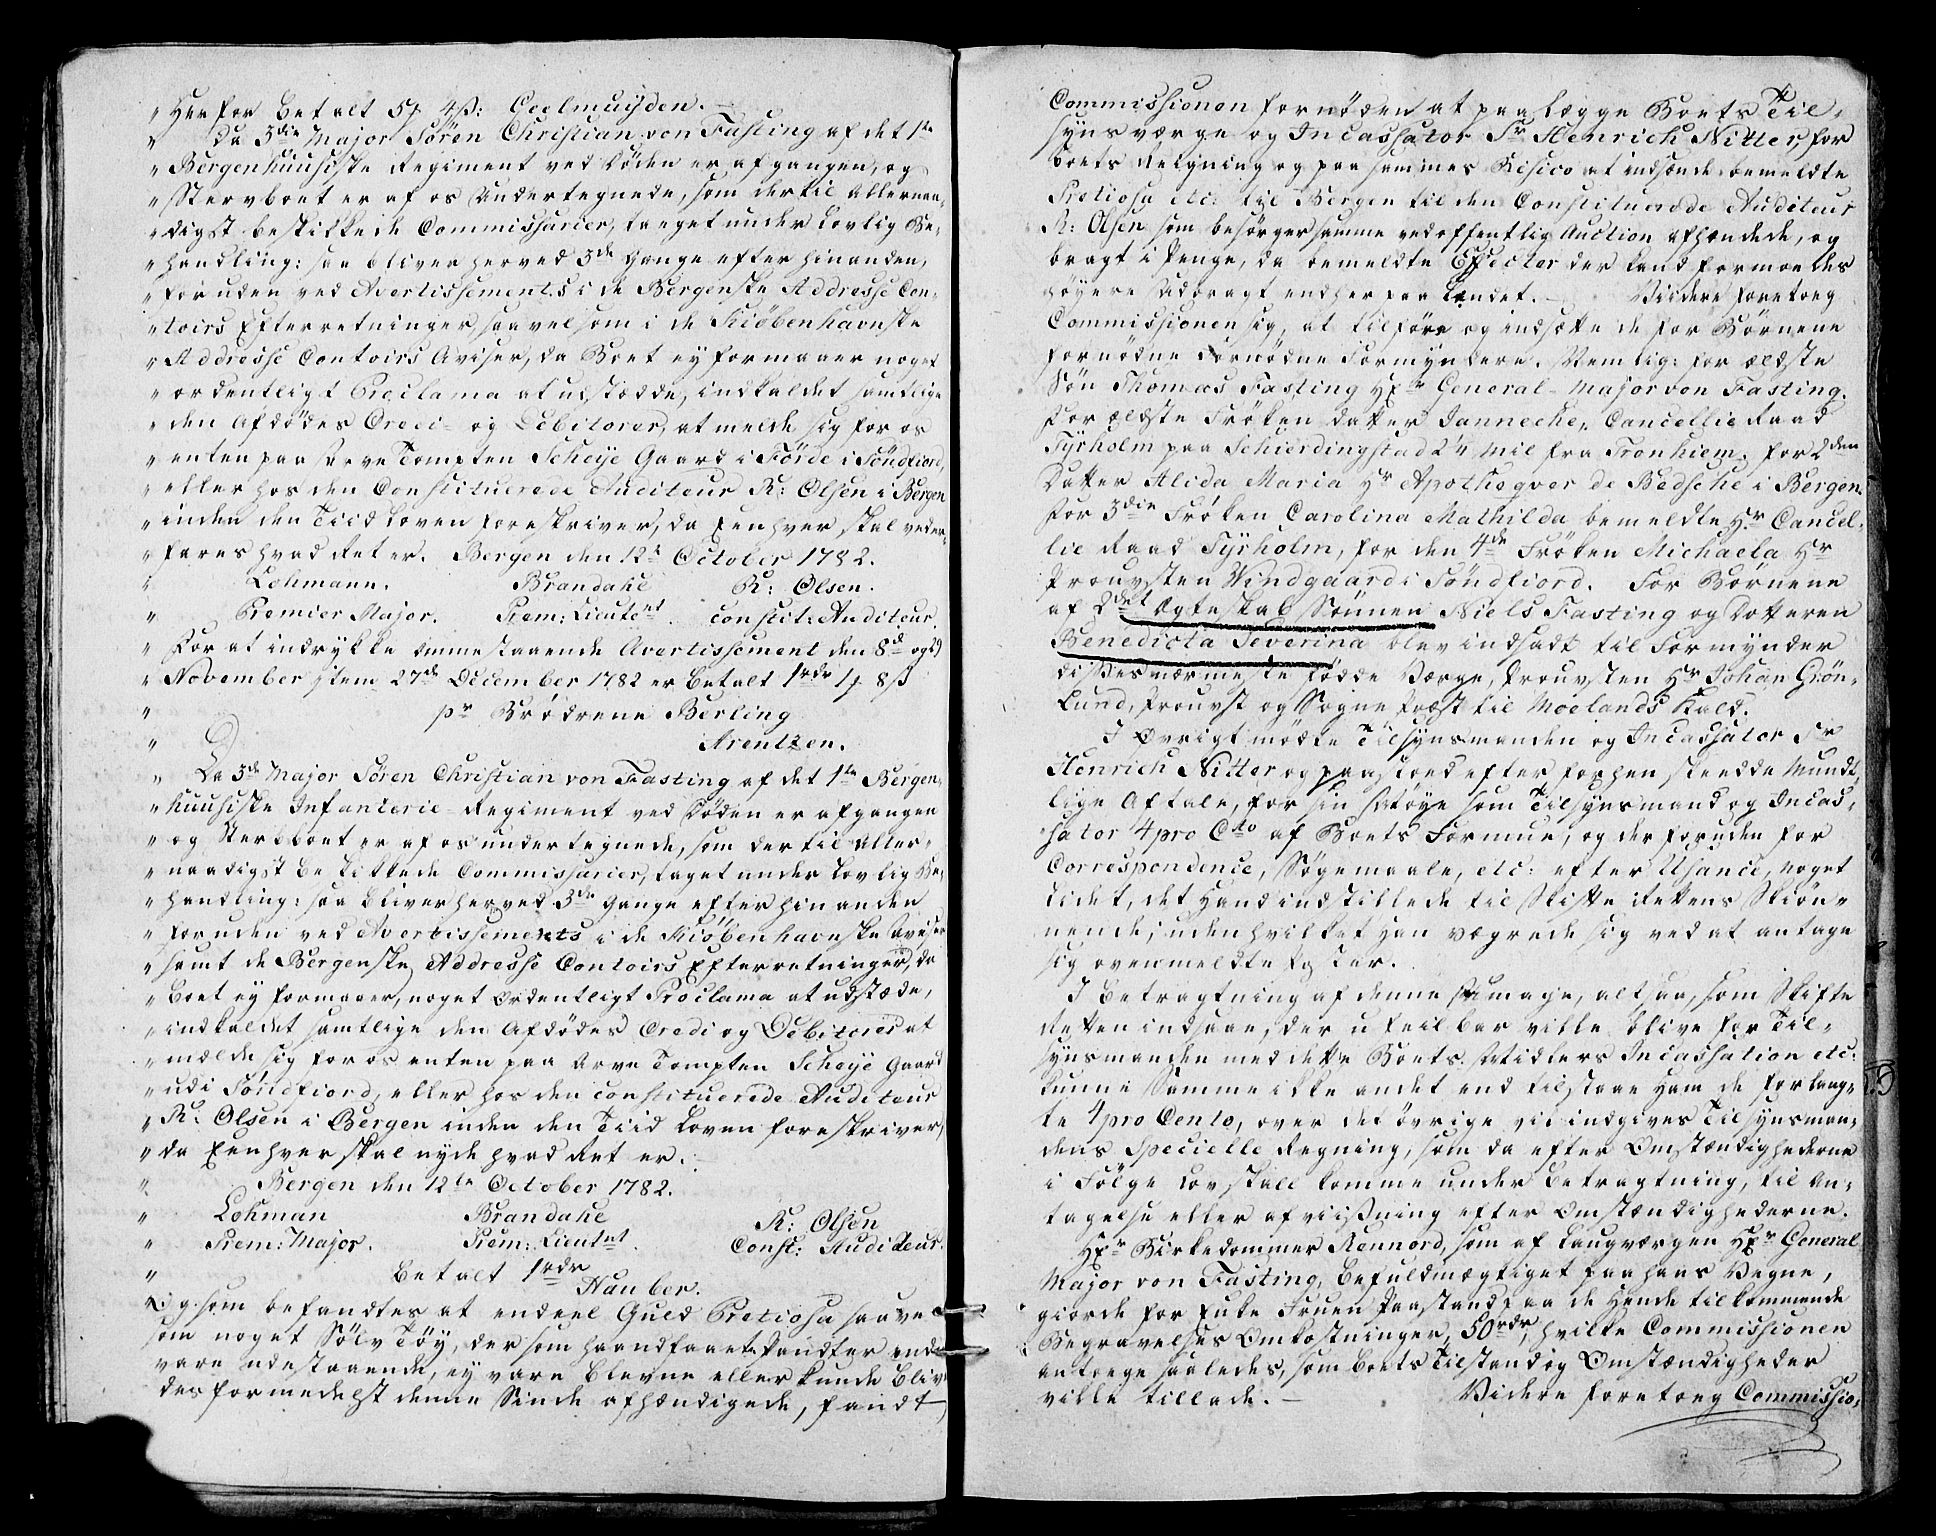 " Herfor betalt 5f 4ß: Geelmuyden. —
" Da 3die Major Sören Christian von Fasting af det 1te
" Bergenhuusiske Regiment ved Döden er afgangen, og
" Stervboet er af os Undertegnede, som dertil Allernaa-
" digst beskikkede Commissarier, taget under Lovlig Be-
" handling: saa bliver herved 3de Gange efter hinanden,
" foruden ved Avertissements i de Bergenske Addresse Con-
" toirs Efterretninger, saavelsom i de Kiöbenhavnske
" Addresse Contoirs Aviser, da Boet ey formaaer noget
" ordentligt Proclama at udstæde, indkaldet samtlige
" den Afdödes Credi- og Debitorer, at melde sig for os
" enten paa Arve Tompten Scheye Gaard i Förde i Söndfiord,
" eller hos den Constituerede Auditeur R: Olsen i Bergen
" inden den Tiid Loven foreskriver, da Eenhver skal veder-
" fares hvad Ret er. Bergen den 12te October 1782.
" Lohmann. Brandahl R: Olsen.
" Premier Major. Prem: Lieutnt. constit: Auditeur.
" For at indrykke ommestaaende Avertissement den 8d og
" November item 27de December 1782 er betalt 1rdr 1f 8ß
" pr Brödrene Berling
" Arentzen.
" Da 3de Major Sören Christian von Fasting af det 1te Bergen-
" huusiske Infanterie-Regiment ved Döden er afgangen
" og Sterbboet er af os undertegnede, som dertil Aller-
" naadigst beskikkede Commissarier, taget under Lovlig Be-
" handling: saa bliver herved 3de gange efter hinanden
" foruden ved Avertissements i de Kiöbenhavnske Aviser
" samt de Bergenske Addresse Contoirs Efterretninger, da
" Boet ey formaaer, noget ordentligt Proclama at udstæde,
" indkaldet samtlige den Afdödes Credi og Debitorer at
" mælde sig for os enten paa Arve Tompten Scheye Gaard
" udi Söndfiord, eller hos den constituerede Auditeur
" R: Olsen i Bergen inden den Tiid Loven foreskriver,
" da Eenhver skal nyde hvad Ret er.
" Bergen den 12te October 1782.
" Lohman Brandahl R: Olsen
" Prem: Major. Prem: Lieutnt. Const: Auditeur.
" betalt 1rdr
Hauber.
Og som befandtes at endeel Guld Pretiosa saavel
som noget Sölv Töy, der som haandfaaet Pandter endnu
vare udestaaende, ey vare blevne eller kunde bliv
des formedelst denne Sinde afhændigede, fandt
Commissionen fornöden at paalegge Boets Til-
syns værge og Incassator Sr Henrich Nitter, for
Boets Reigning og paa sammes Risico at indsende bemeldte
Pretiosa etc: til Bergen til den Constituerede Auditeur
R: Olsen som besörger samme ved offentlig Auction afhændede, og
bragt i Penge, da bemeldte Effecter der kand formodes
höyere udbragt end her paa Landet. — Viidere foretoeg
Commissionen sig, at tilföre og indsætte de for Börnene
fornödne fornödne Formyndere. Nemlig: for ældste
Sön Thomas Fasting Hr General-Major von Fasting.
For ældste Fröken Datter Jannecke, Cancellie Raad
Tyrholm paa Schierdingstad 2¼ Mil fra Tronhiem. for 2den
Datter Alida Maria Hr Apotheqver de Bedsche i Bergen.
For 3die Fröken Carolina Mathilda bemeldte Hr. Cancel-
lie Raad Tyrholm, for den 4de Fröken Michaela Hr
Prouvsten Windgaard i Söndfiord. For Börnene
af 2det Ægteskab Sönnen Niels Fasting og Dotteren
Benedicta Severina blev indsadt til Formynder
disses nærmeste födde Værge, Prouvsten Hr Johan Grön-
Lund, Prouvst og Sogne Præst til Moelands Kald.
I Övrigt mödte Tilsynsmanden og Incassator Sr
Henrich Nitter og paastoed efter forhen skeedde Mundt-
lige Aftale, for sin Umage som Tilsynsmand og Incas-
sator 4 pro Cto af Boets Formue, og der foruden for
Correspondence, Sögemaale, etc: efter Usance, noget
lidet, det Hand indstillede til Skifte Rettens Skiön-
nende; uden hvilket Han vægrede sig ved at antage
sig ovenmeldte Poster.
I betragtning af denne Umage, altsaa, som Skifte
Retten indsaae, der ufeilbar ville blive for Til-
synsmanden med dette Boets Midlers Incassation etc:
kunne Samme ikke andet end tilstaae Ham de forlang-
te 4 pro Cento, over det övrige vil indgives Tilsynsman-
dens Specielle Regning, som da efter Omstændighederne
i Fölge Lov skall komme under betragtning, til An-
tagelse eller afviisning efter Omstændighederne.
Hr Birkedommer Rennord, som af Laugværgen Hr General
Major von Fasting, befuldmægtiget paa hans Vegne,
giorde for Enke Fruen Paastand paa de Hende tilkommende
Begravelses Omkostninger, 50rdr, hvilke Commissionen
antoege saaledes, som Boets Tilstand og Omstændigheder
ville tillade. — Videre foretoeg Commissio-